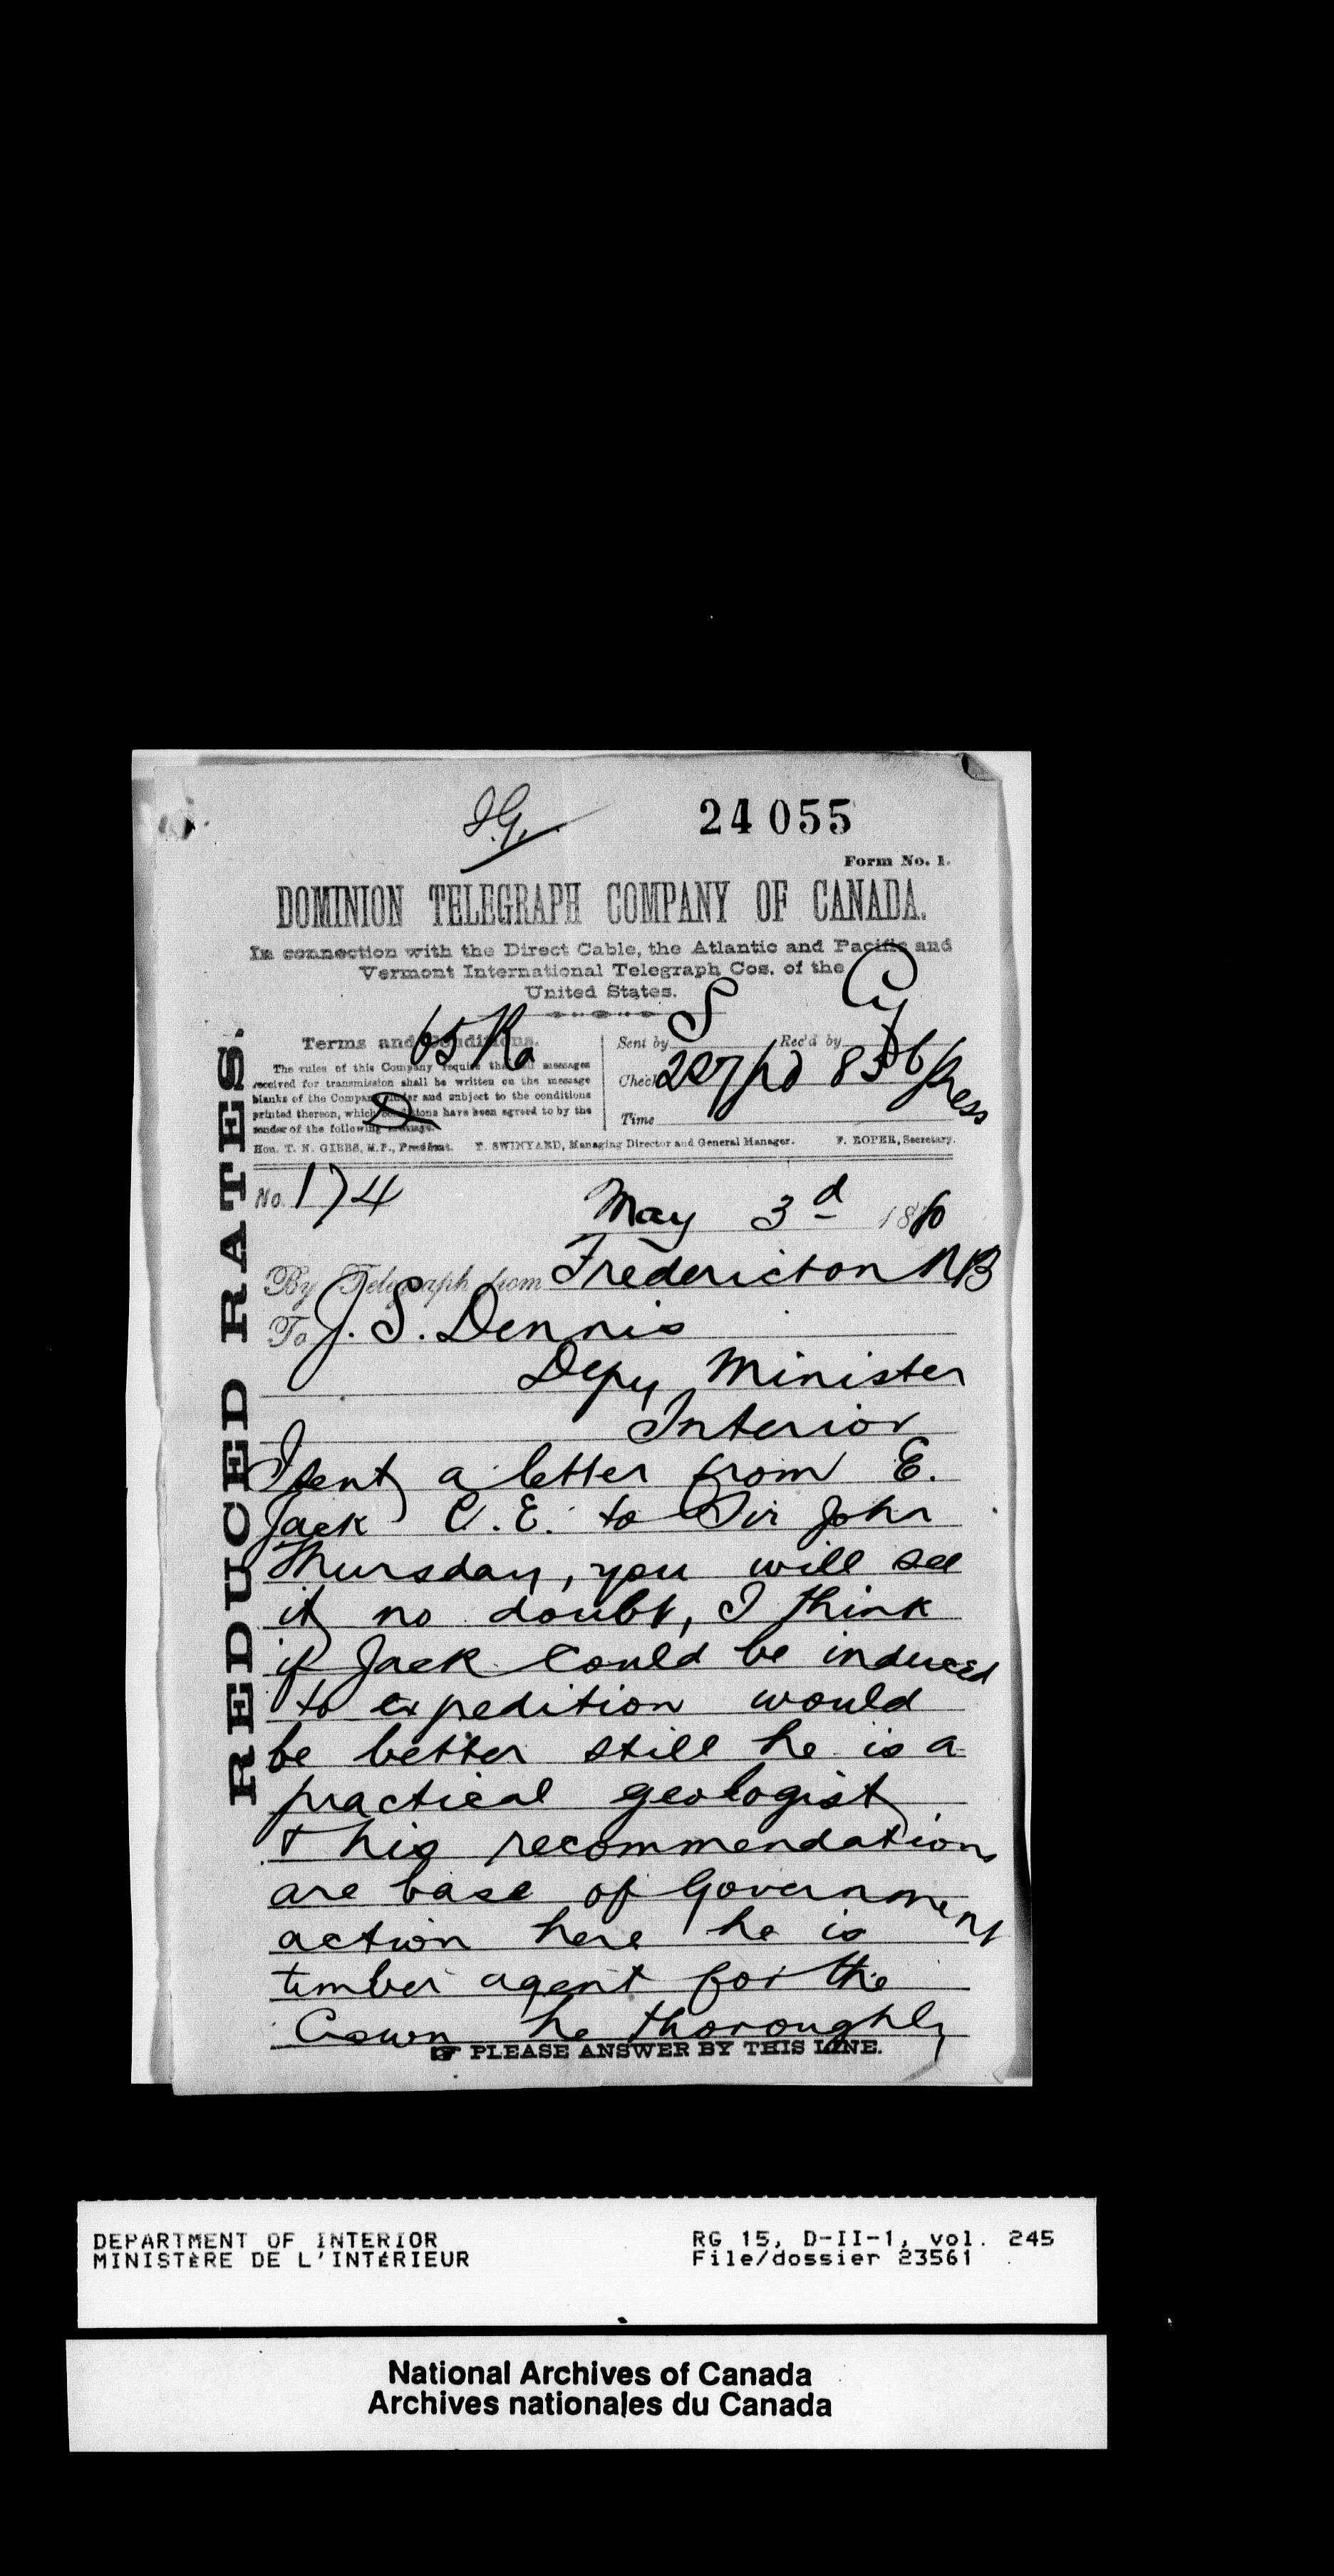 24055
Form No. 1.
DOMINION TELEGRAPH COMPANY OF CANADA.
In connection with the Direct Cable, the Atlantic and Pacific and
Vermont International Telegraph Cos. of the
United States.
Terms and Conditions.
The rules of this Company require that all messages
received for transmission shall be written on the message
blanks of the Company under and subject to the conditions
printed thereon, which conditions have been agreed to by the
sender of the following message.
Sent by S Rec'd by
Check
Time
Hon. T. N. GIBBS, M.P., President. T. SWINYARD, Managing Director and General Manager. F. ROPER, Secretary.
REDUCED RATES.
No. 174
May 3d 1880
By Telegraph from Fredericton NB
To J. S. Dennis
Depy Minister
Interior
I sent a letter from E.
Jack C.E. to Sir John
Thursday, you will see
it no doubt, I think
if Jack could be induced
to expedition would
be better still he is a
practical geologist
& his recommendations
are base of Government
action here he is
timber agent for the
Crown he thoroughly
☞ PLEASE ANSWER BY THIS LINE.
DEPARTMENT OF INTERIOR
MINISTÈRE DE L'INTÉRIEUR
RG 15, D-II-1, vol. 245
File/dossier 23561
National Archives of Canada
Archives nationales du Canada